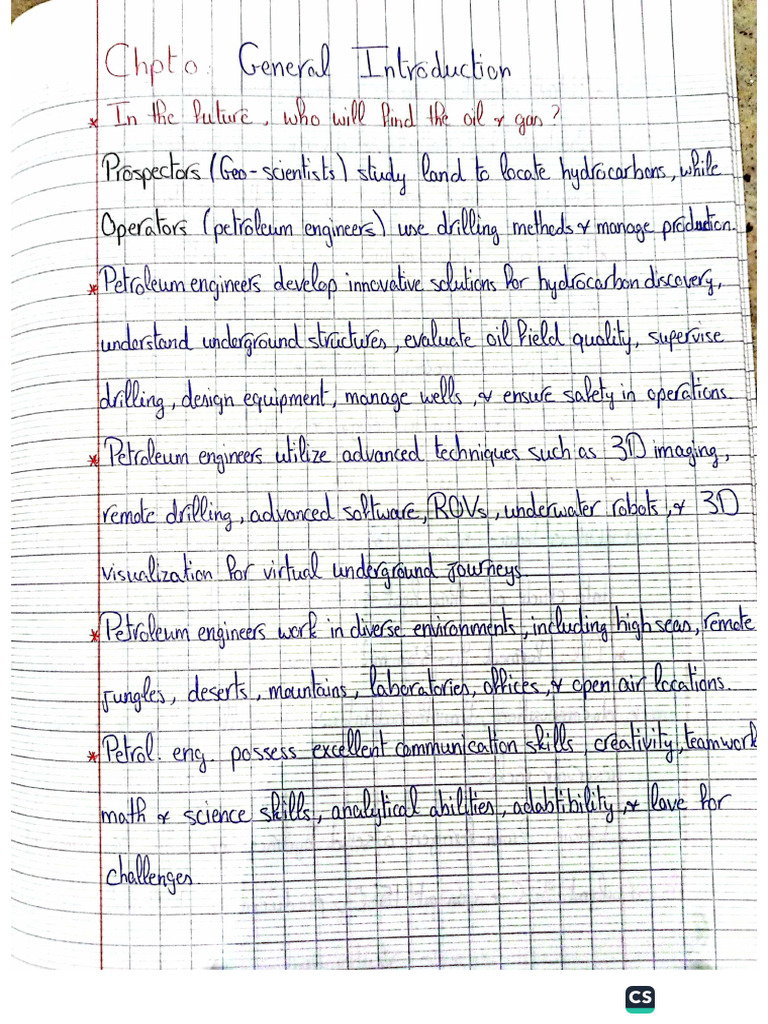 Chpt 0. General Introduction
* In the future, who will find the oil & gas?
Prospectors (Geo-scientists) study land to locate hydrocarbons, while
Operators (petroleum engineers) use drilling methods & manage production.
* Petroleum engineers develop innovative solutions for hydrocarbon discovery,
understand underground structures, evaluate oil field quality, supervise
drilling, design equipment, manage wells, & ensure safety in operations.
* Petroleum engineers utilize advanced techniques such as 3D imaging,
remote drilling, advanced software, ROVs, underwater robots, & 3D
visualization for virtual underground journeys.
* Petroleum engineers work in diverse environments, including high seas, remote
jungles, deserts, mountains, laboratories, offices, & open air locations.
* Petrol. eng. possess excellent communication skills, creativity, teamwork
math & science skills, analytical abilities, adabtibility, & love for
challenges.
CS